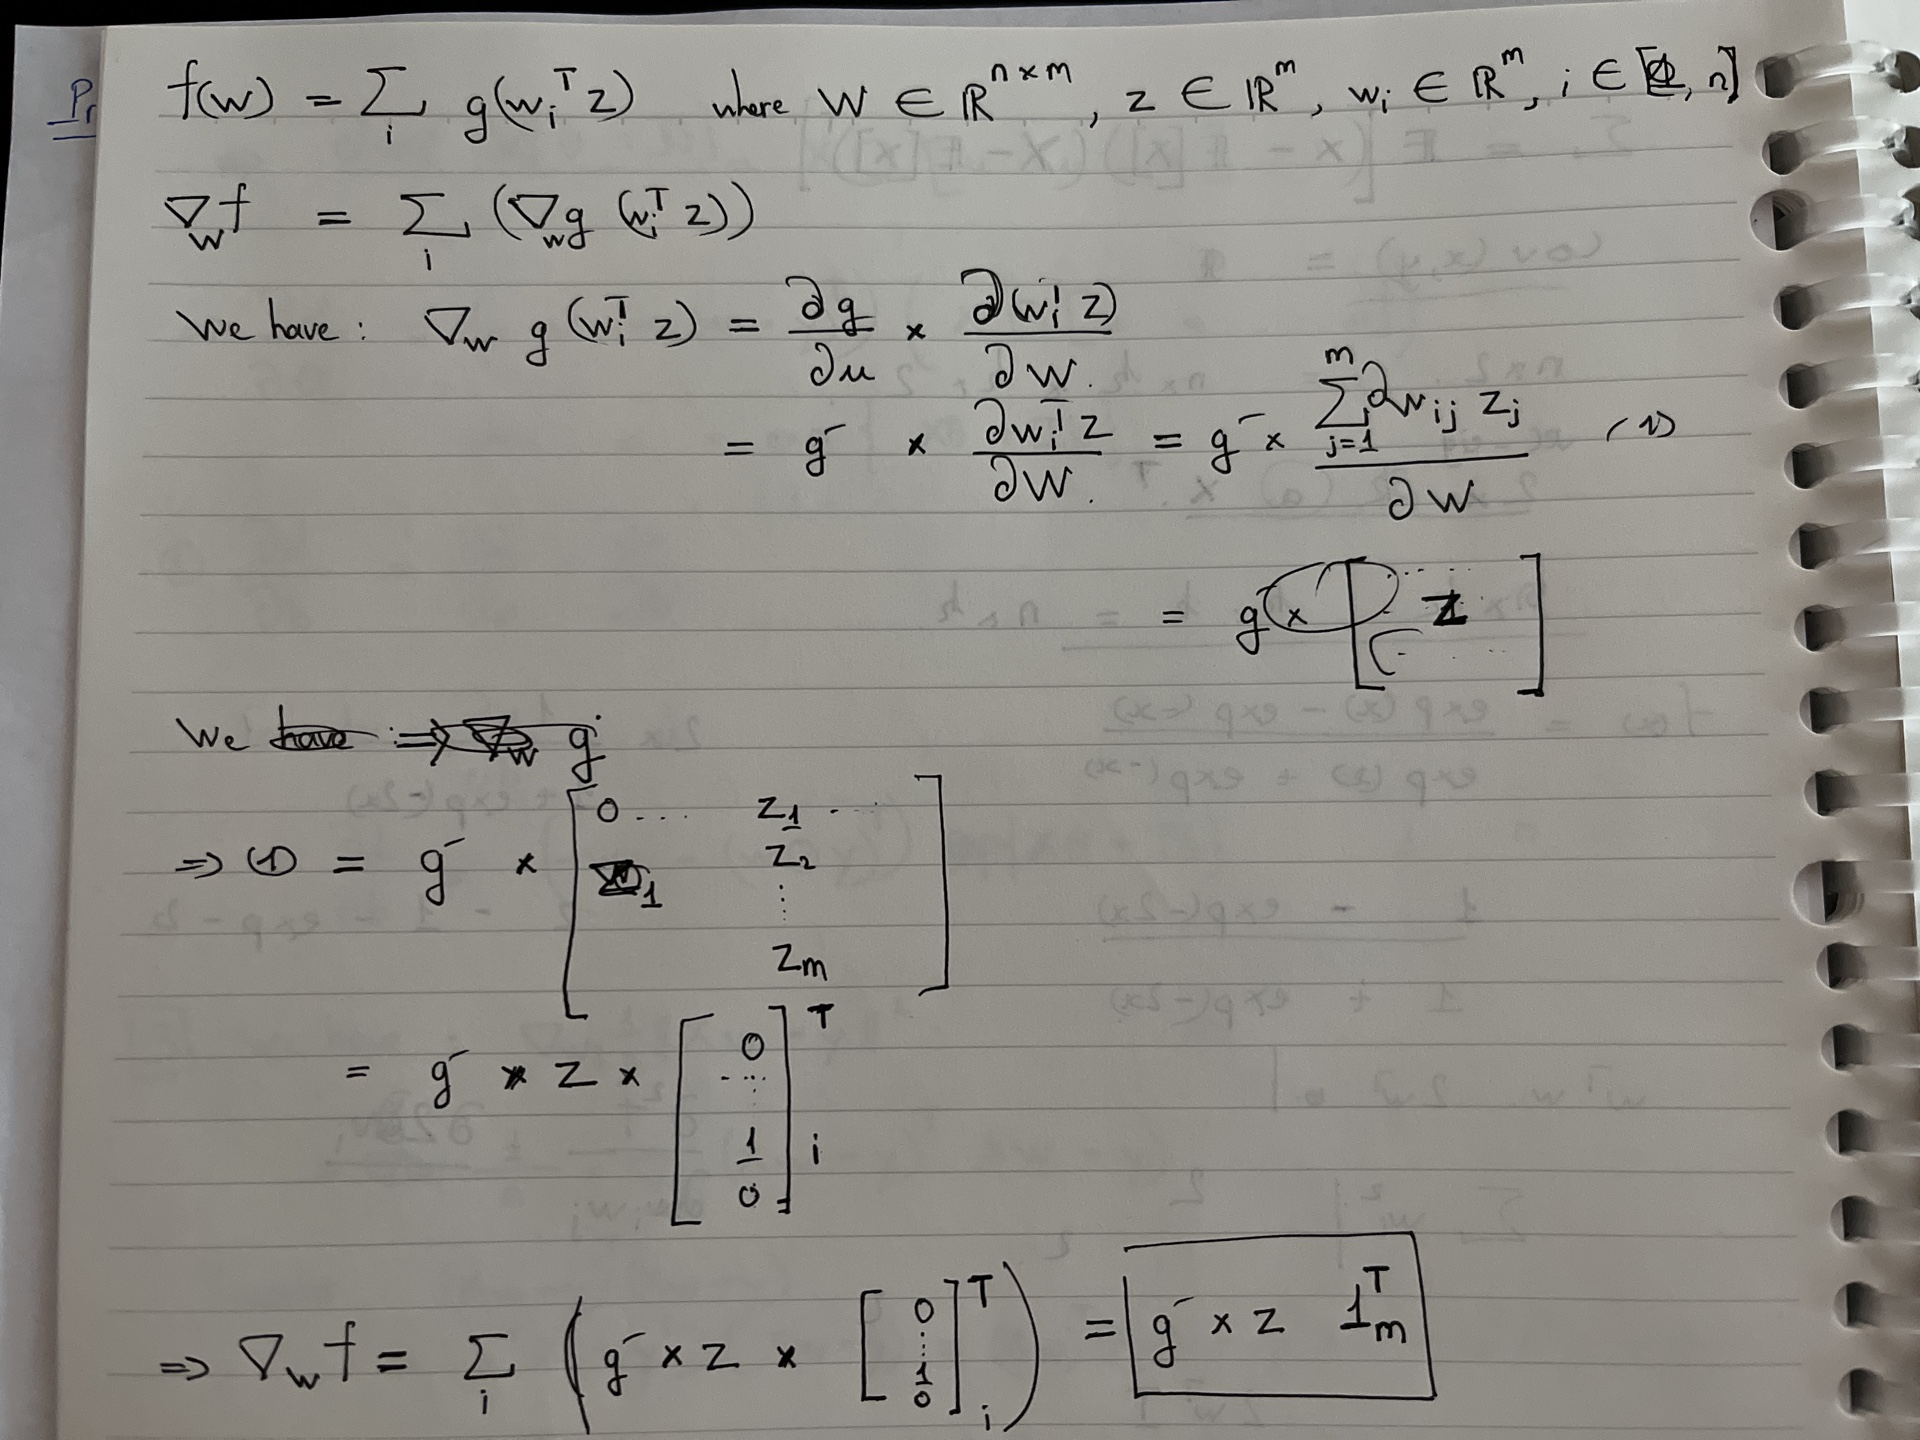 Pr
f(w) = Σ_i g(w_i^T z) where W ∈ ℝ^{n×m}, z ∈ ℝ^m, w_i ∈ ℝ^m, i ∈ [1, n]
∇_w f = Σ_i (∇_w g (w_i^T z))
We have: ∇_w g (w_i^T z) = ∂g/∂u × ∂(w_i^T z)/∂W.
= g' × ∂w_i^T z/∂W. = g' × Σ_{j=1}^m ∂w_ij z_j/∂W (1)
= g' × [ z ]
We have ⇒ ∇_w g
⇒ (1) = g' × [ 0 ... z_1 ...
z_2
⋮
z_m ]
= g' * z × [ 0 ... 1 0 ]^T i
⇒ ∇_w f = Σ_i ( g' × z × [ 0 ⋮ 1 0 ]^T_i ) = g' × z 1_m^T